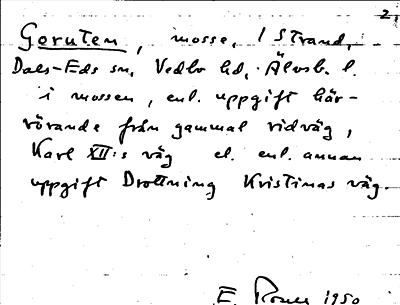 2.
Goruten, mosse, i Strand,
Dals-Eds sn, Vedbo hd, Älvsb. l.
i mossen, enl. uppgift här-
rörande från gammal ridväg,
Karl XII:s väg el. enl. annan
uppgift Drottning Kristinas väg.
E. 1950